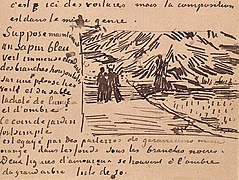 c'est ici des voitures mais la composition
est dans le même genre.
Suppose maintenant
un sapin bleu
vert immense étendant
des branches horizontales
sur une pelouse très
verte et du sable
tacheté de lumière
et d'ombre
Ce coin de jardin
fort simple
est égayé par des parterres de géraniums mine
orange dans les fonds sous les branches noires.
Deux figures d'amoureux se trouvent à l'ombre
du grand arbre toile de 30.